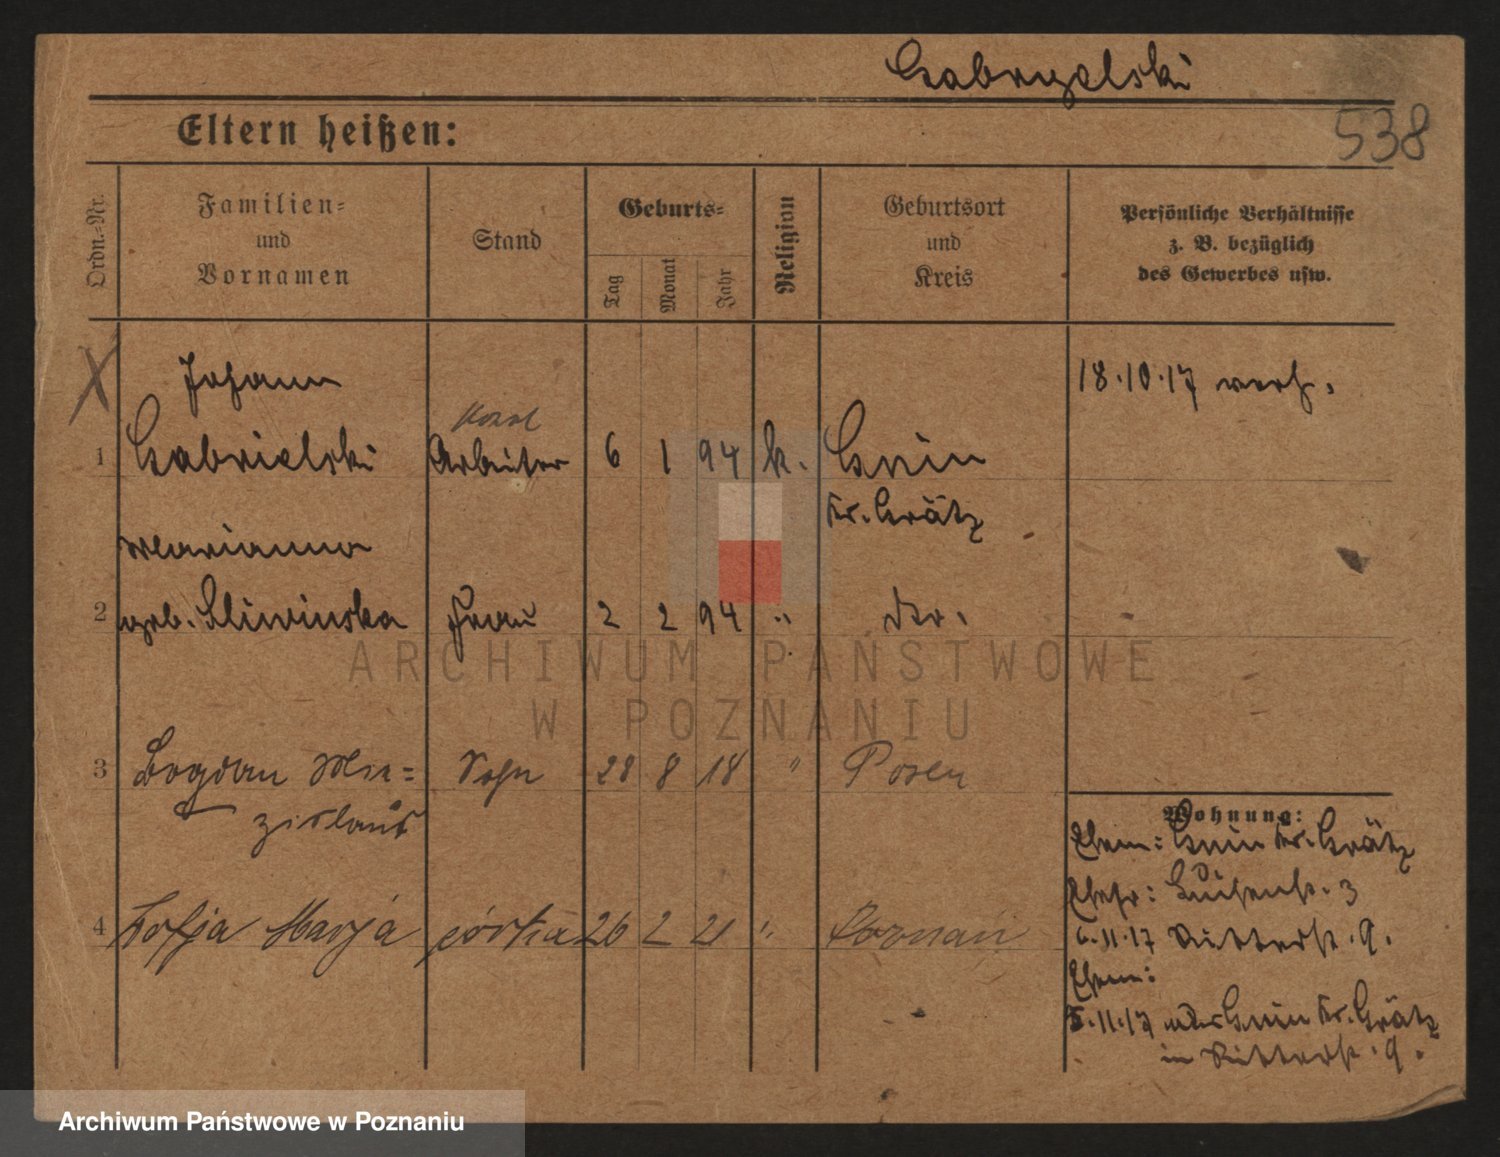 Gabryelski
538
Eltern heißen:
Ordn.-Nr.
Familien-
und
Vornamen
Stand
Geburts-
Tag
Monat
Jahr
Religion
Geburtsort
und
Kreis
Persönliche Verhältnisse
z. B. bezüglich
des Gewerbes usw.
Johann
18.10.17 verh.
1 Gabrielski Arbeiter 6 1 94 k. Gnin
Kr. Grätz
Marianna
2 geb. Sliwinska Frau 2 2 94 " der.
3 Bogdan Mie= Sohn 28 8 18 " Posen
zislaus
Wohnung:
Ehem: Gnin Kr. Grätz
Ehefr: Luisenst. 3
4 Zofja Marja córka 26 2 21 " Poznań
6.11.17 Ritterst. 9.
Ehem:
5.11.17 Gnin Kr. Grätz
in Ritterst. 9.
ARCHIWUM PAŃSTWOWE
W POZNANIU
Archiwum Państwowe w Poznaniu